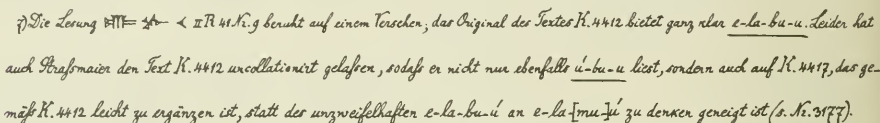 7) Die Lesung 𒂊 𒆷 𒌋 II R 41 Nr. 9 beruht auf einem Versehen; das Original des Textes K. 4412 bietet ganz klar e-la-bu-u. Leider hat
auch Straſsmaier den Text K. 4412 uncollationirt gelaſsen, sodaſs er nicht nur ebenfalls ú-bu-u liest, sondern auch auf K. 4417, das ge-
mäſs K. 4412 leicht zu ergänzen ist, statt des unzweifelhaften e-la-bu-ú an e-la-[mu-]ú zu denken geneigt ist (s. Nr. 3177).